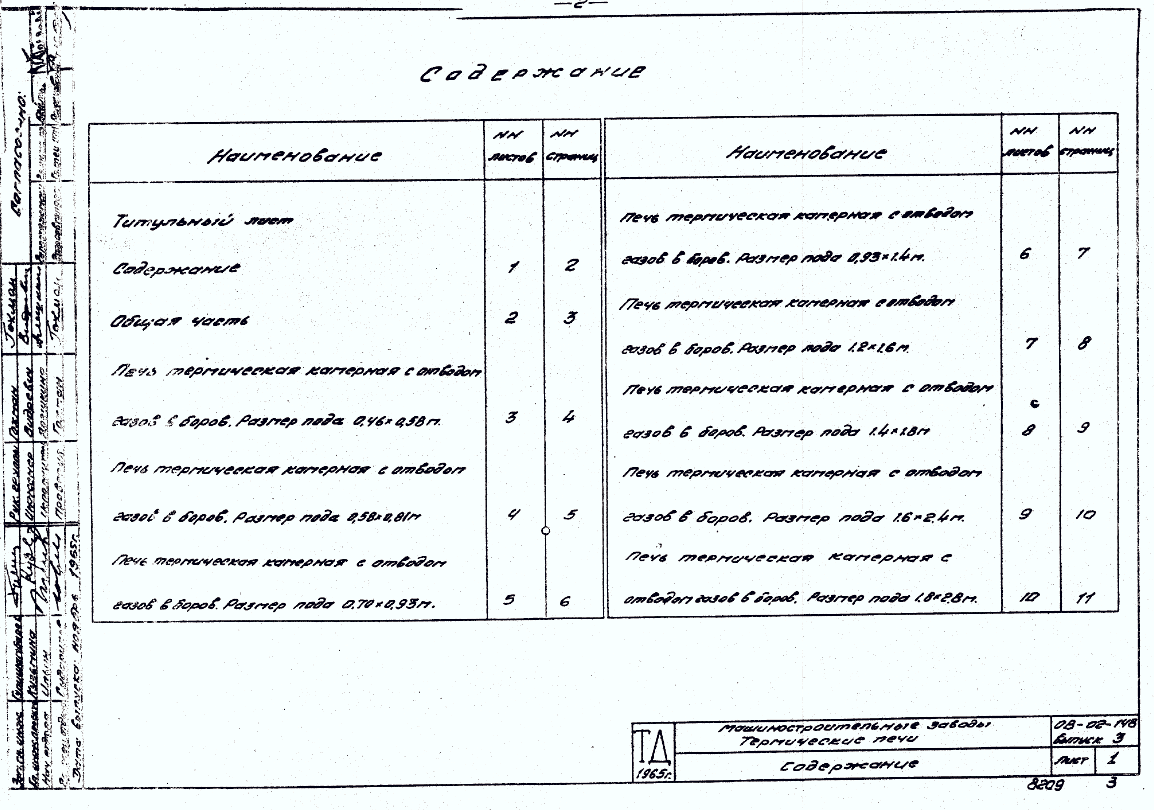 —2—
Содержание
Наименование
NN листов
NN страниц
Титульный лист
Содержание 1 2
Общая часть 2 3
Печь термическая камерная с отводом
газов в боров. Размер пода 0,46×0,58м. 3 4
Печь термическая камерная с отводом
газов в боров. Размер пода 0,58×0,81м 4 5
Печь термическая камерная с отводом
газов в боров. Размер пода 0.70×0,93м. 5 6
Наименование
NN листов
NN страниц
Печь термическая камерная с отводом
газов в боров. Размер пода 0,93×1.4м. 6 7
Печь термическая камерная с отводом
газов в боров. Размер пода 1.2×1.6м. 7 8
Печь термическая камерная с отводом
газов в боров. Размер пода 1.4×1.8м 8 9
Печь термическая камерная с отводом
газов в боров. Размер пода 1.6×2.4м. 9 10
Печь термическая камерная с
отводом газов в боров. Размер пода 1.8×2.8м. 10 11
Согласовано:
Гохман
Видревич
Гохман
Рук. группы Гохман
Инженер Видревич
Исполнитель
Проверил Гохман
Кузьмина
Ильин
Дата выпуска: ноябрь 1965г.
ТД
1965г.
Машиностроительные заводы
Термические печи
Содержание
08-02-148
Выпуск 3
Лист 1
8209 3